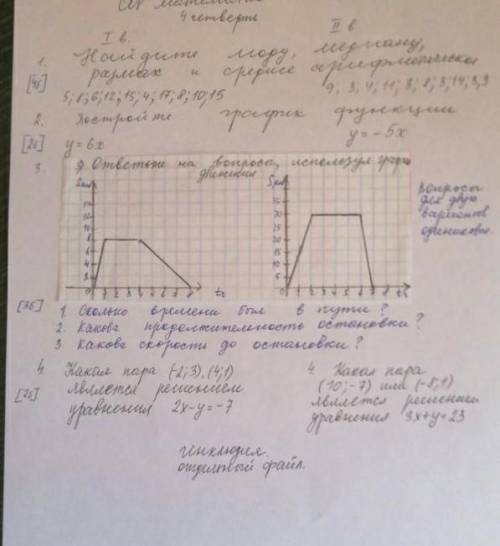 СР математика
4 четверть
I в. II в
1. Найдите моду, медиану,
[4б] размах и среднее арифметическое
5; 8; 6; 12; 15; 4; 17; 8; 10; 15 9; 3; 4; 11; 3; 8; 3; 14; 3; 3
2. Постройте график функции
[2б] y=6x y=-5x
3. Ответьте на вопросы, используя график
движения
Вопросы
для двух
вариантов
одинаковые.
[3б] 1. Сколько времени был в пути?
2. Какова продолжительность остановки?
3 Какова скорость до остановки?
4. Какая пара (-2;3), (4;1)
[2б] является решением
уравнения 2x-y=-7
4. Какая пара
(10;-7) или (-8;1)
является решением
уравнения 3x+y=23
отдельный файл.